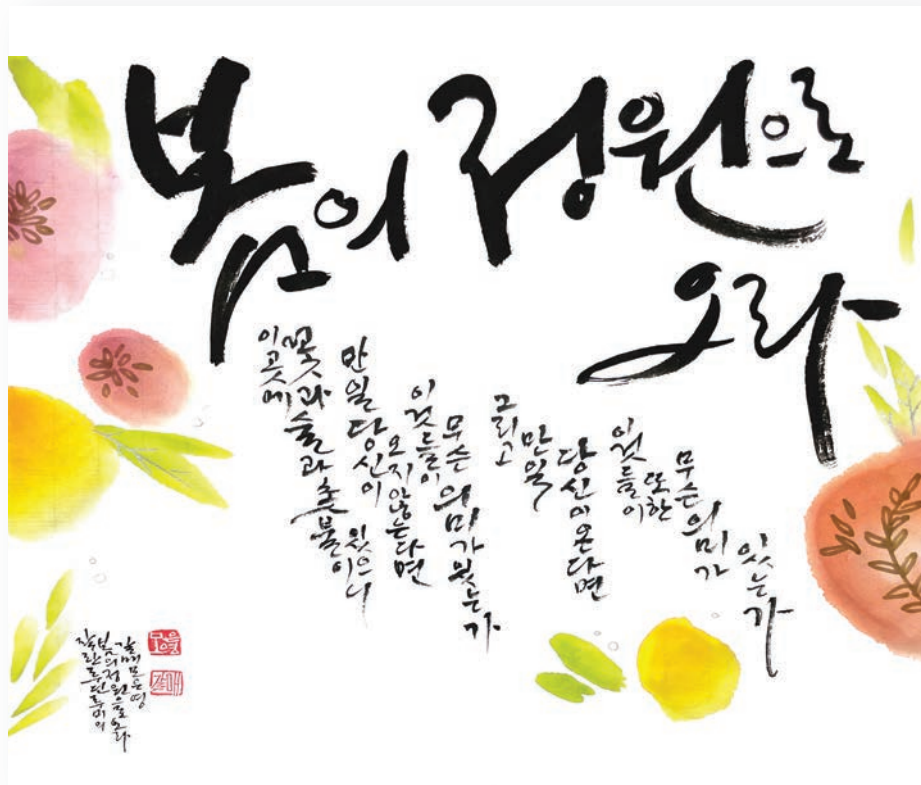 봄의 정원으로
오라
이곳에
꽃과 술과 촛불이
있으니
만일 당신이
오지 않는다면
이것들이
무슨 의미가 있는가
그리고
만일
당신이 온다면
이것들이
또한
무슨 의미가
있는가
잘란루딘루미의
봄의정원으로오라
갈매모은영
갈매